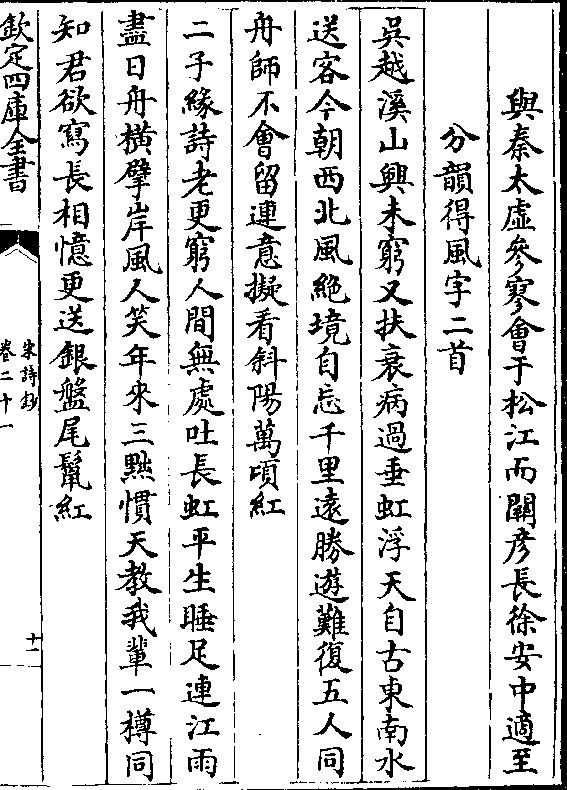 與秦太虛參寥會于松江而關彥長徐安中適至
分韻得風字二首
吳越溪山興未窮又扶衰病過垂虹浮天自古東南水
送客今朝西北風絶境自忘千里遠勝遊難復五人同
舟師不會留連意擬看斜陽萬頃紅
二子緣詩老更窮人間無處吐長虹平生睡足連江雨
盡日舟橫擘岸風人笑年來三黜慣天教我輩一樽同
知君欲寫長相憶更送銀盤尾鬛紅
欽定四庫全書
宋詩鈔
卷二十一
十二